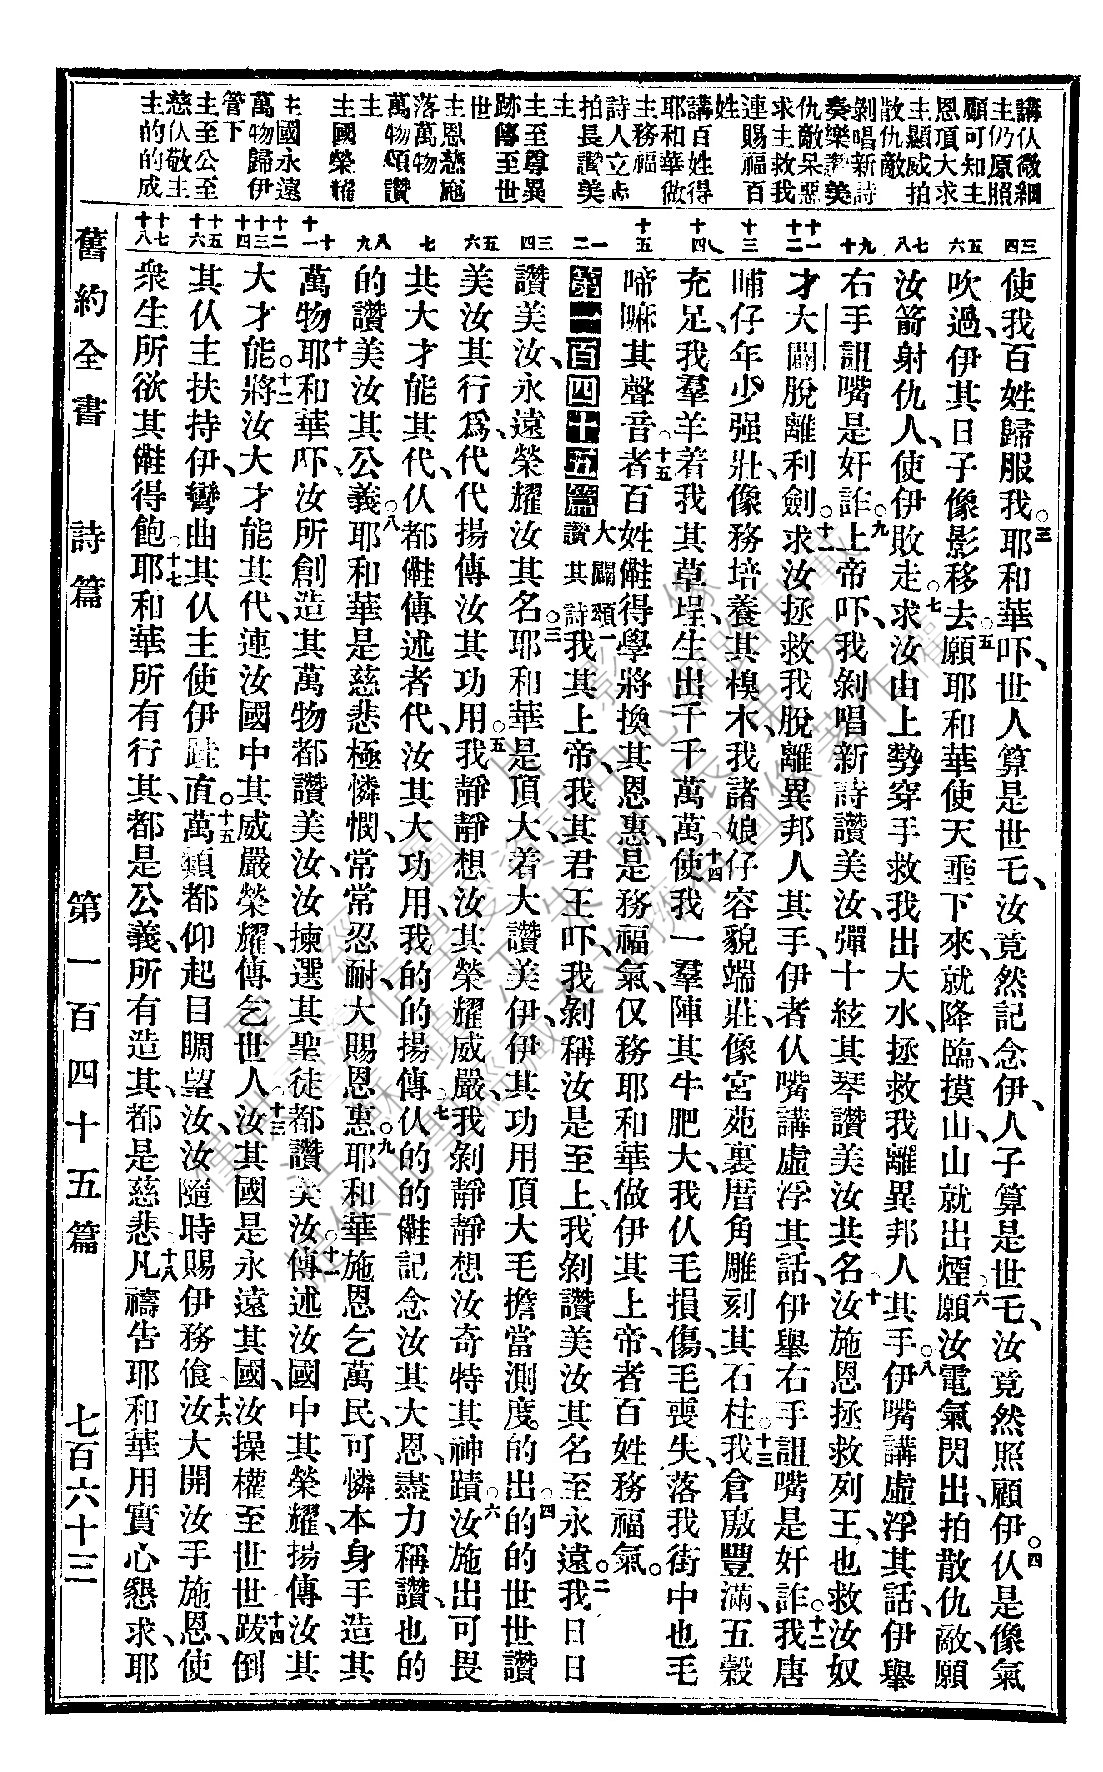 講仫微細
主仍原照
顧可知主
恩頂大求
主顯威拍
散仇敵
剝唱新詩
奏樂讚美
仇敵呆惡
求主救我
連賜福百
姓
講百姓得
耶和華做
主務福
詩人立志
拍長讚美
主
主至尊異
跡傳至世
世
主恩慈施
落萬物
萬物頌讚
主
主國榮耀
主國永遠
萬物歸伊
管下
主至公至
慈仫敬主
主的的成
三 四
五 六
七 八
九 十
十一 十二
十三
十四
十五
一 二
三 四
五 六
七
八 九
十 十一
十二 十三 十四
十五 十六
十七 十八
使我百姓歸服我。三耶和華吓、世人算是世乇、汝竟然記念伊、人子算是世乇、汝竟然照顧伊。四仫是像氣
吹過、伊其日子像影移去。五願耶和華使天埀下來、就降臨、摸山、山就出煙。六願汝電氣閃出、拍散仇敵、願
汝箭射仇人、使伊敗走。七求汝由上勢穿手救我出大水、拯救我離異邦人其手。八伊嘴講虛浮其話、伊舉
右手詛嘴是奸詐。九上帝吓、我剝唱新詩讚美汝、彈十絃其琴讚美汝其名。十汝施恩拯救列王、也救汝奴
才大闢脫離利劍。十一求汝拯救我脫離異邦人其手、伊者仫嘴講虛浮其話、伊舉右手詛嘴是奸詐。十二我唐
晡仔年少强壯、像務培養其模木、我諸娘仔容貌端莊、像宮苑裏厝角雕刻其石柱。十三我倉廒豐滿、五穀
充足、我羣羊着我其草埕、生出千千萬萬。十四使我一羣陣其牛肥大、我仫毛損傷、毛喪失、落我街中也毛
啼嘛其聲音。十五者百姓儺得學將換其恩惠、是務福氣、仅務耶和華做伊其上帝、者百姓務福氣。
第一百四十五篇 大闢頌讚其詩
一我其上帝、我其君王吓、我剝稱汝是至上、我剝讚美汝其名至永遠。二我日日
讚美汝、永遠榮耀汝其名。三耶和華是頂大、着大讚美伊、伊其功用頂大毛擔當測度。四的出的的世世讚
美汝其行爲、代代揚傳汝其功用。五我靜靜想汝其榮耀威嚴、我剝靜靜想汝奇特其神蹟。六汝施出可畏
其大才能其代、仫都儺傳述者代、汝其大功用、我的的揚傳。七仫的的儺記念汝其大恩、盡力稱讚、也的
的讚美汝其公義。八耶和華是慈悲極憐憫、常常忍耐、大賜恩惠。九耶和華施恩乞萬民、可憐本身手造其
萬物。十耶和華吓、汝所創造其萬物都讚美汝、汝揀選其聖徒都讚美汝。十一傳述汝國中其榮耀、揚傳汝其
大才能。十二將汝大才能其代、連汝國中其威嚴榮耀、傳乞世人。十三汝其國是永遠其國、汝操權至世世。十四跋倒
其仫主扶持伊、彎曲其仫主使伊𨂿直。十五萬類都仰起目睭望汝、汝隨時賜伊務飡。十六汝大開汝手施恩、使
衆生所欲其儺得飽。十七耶和華所有行其、都是公義、所有造其、都是慈悲。十八凡禱告耶和華用實心懇求、耶
舊約全書 詩篇 第一百四十五篇 七百六十三